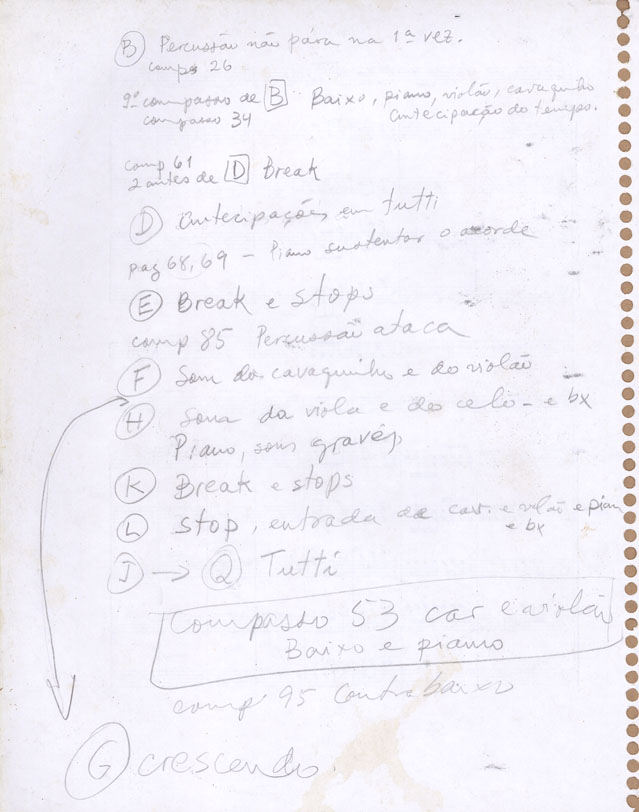 B Percussão não pára na 1ª vez.
comps 26
9º compasso de B Baixo, piano, violão, cavaquinho
compasso 34 antecipação do tempo.
comp 61
2 antes de D Break
D antecipações em tutti
pag 68, 69 - Piano sustentar o acorde
E Break e stops
comp 85 Percussão ataca
F Som dos cavaquinho e do violão
H Sons da viola e do celo - e bx
Piano, sons graves
K Break e stops
L stop, entrada de cav. e violão e pian
e bx
J → Q Tutti
Compasso 53 cav e violão
Baixo e piano
comp 95 Contrabaixo
G crescendo.